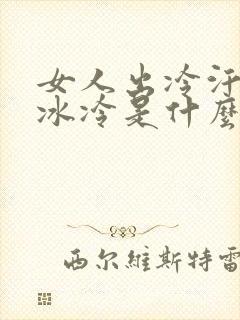 女人出冷汗
冰冷是什麼
西尔維斯特雷